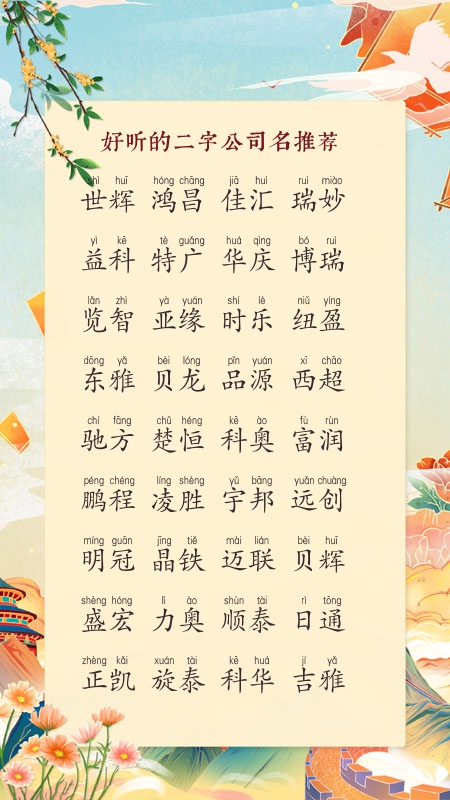 好听的二字公司名推荐
shì huī hóng chāng jiā huì ruì miào
世辉 鸿昌 佳汇 瑞妙
yì kē tè guǎng huá qìng bó ruì
益科 特广 华庆 博瑞
lǎn zhì yà yuán shí lè niǔ yíng
览智 亚缘 时乐 纽盈
dōng yǎ bèi lóng pǐn yuán xī chāo
东雅 贝龙 品源 西超
chí fāng chǔ héng kē ào fù rùn
驰方 楚恒 科奥 富润
péng chéng líng shèng yǔ bāng yuǎn chuàng
鹏程 凌胜 宇邦 远创
míng guān jīng tiě mài lián bèi huī
明冠 晶铁 迈联 贝辉
shèng hóng lì ào shùn tài rì tōng
盛宏 力奥 顺泰 日通
zhèng kǎi xuán tài kē huá jí yǎ
正凯 旋泰 科华 吉雅